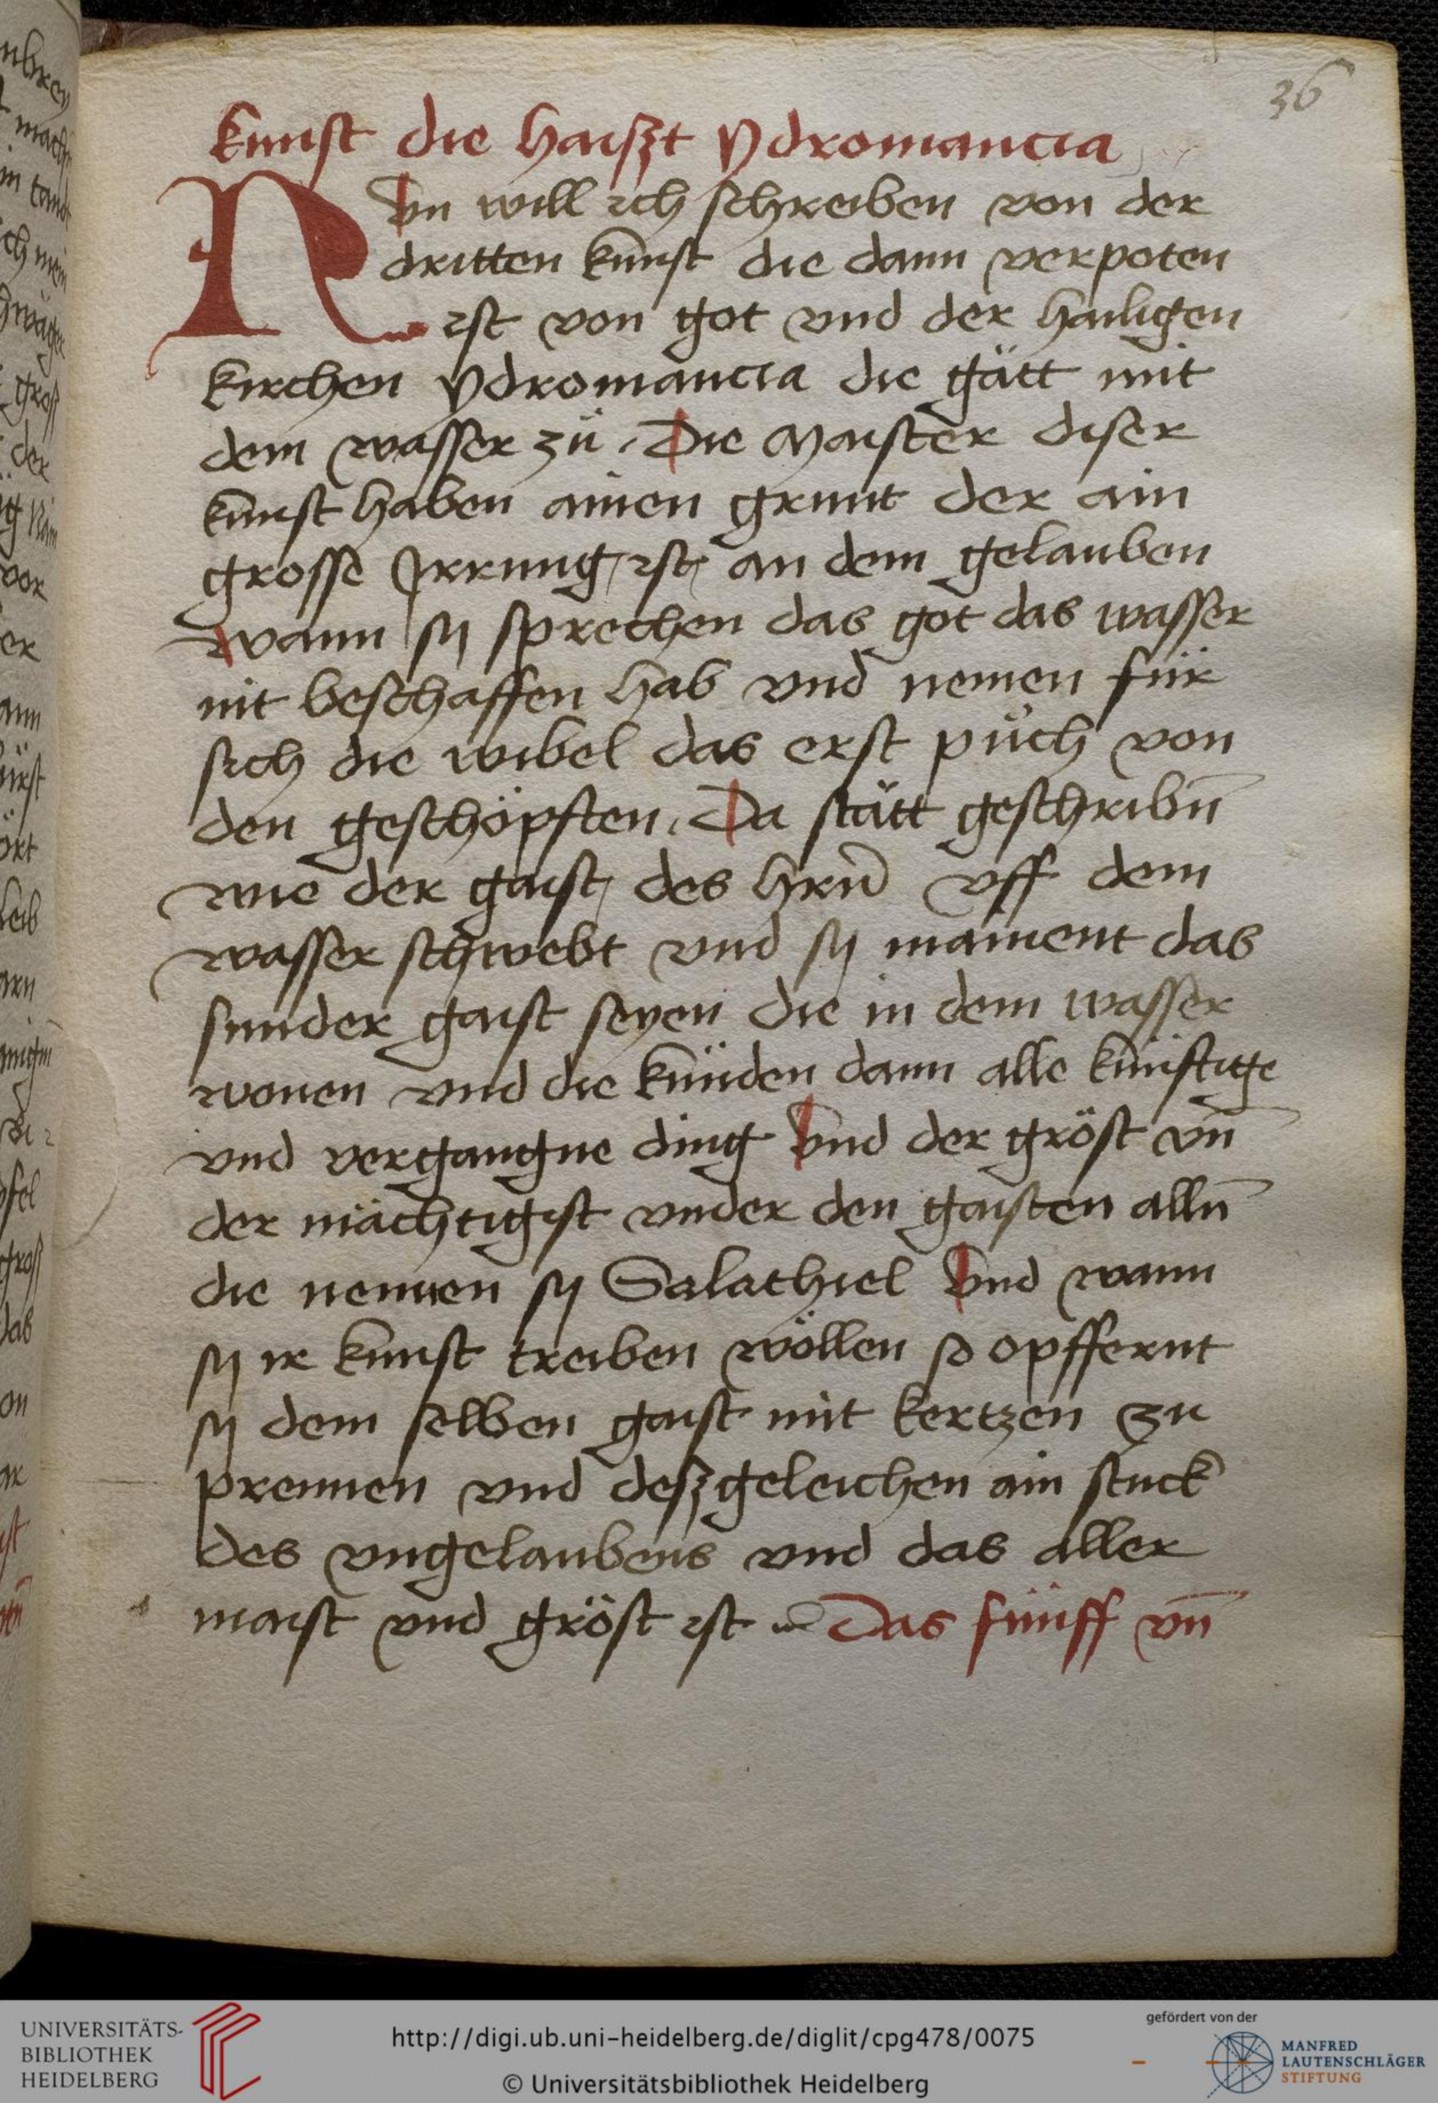 36
kunst die haiszt ydromancia
NVn will ich schreiben von der
dritten kunst die dann verpoten
ist von got vnd der hailigen
kirchen ydromancia die gätt mit
dem wasser zů. Die Maister diser
kunst haben ainen grunt der ain
grosse Irrung ist an dem gelauben
wann sy sprechen das got das wasser
nit beschaffen hab vnd nemen für
sich die wibel das erst půch von
den geschöpften. Da stätt geschribn̄
wie der gaist des hrn̄ vff dem
wasser schwebt vnd sy mainent das
sunder gaist seyen die in dem wasser
wonen vnd die künden dann alle künftige
vnd vergangne ding Vnd der gröst vn̄
der mächtigist vnder den gaisten alln̄
die nennen sy Salathiel Vnd wann
sy ir kunst treiben wöllen so opffernt
sy dem selben gaist mit kertzen zu
prennen vnd deszgeleichen ain stuck
des vngelaubens vnd das aller
maist vnd gröst ist Das fünff vn̄
UNIVERSITÄTS-
BIBLIOTHEK
HEIDELBERG
http://digi.ub.uni-heidelberg.de/diglit/cpg478/0075
© Universitätsbibliothek Heidelberg
gefördert von der
MANFRED
LAUTENSCHLÄGER
STIFTUNG